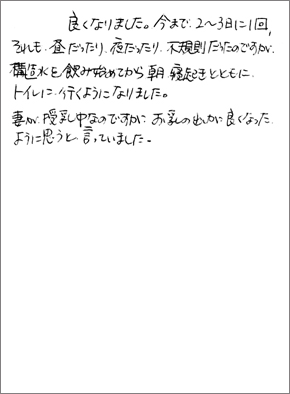 良くなりました。今まで、2〜3日に1回、
それも、昼だったり、夜だったり、不規則だったのですが、
構造水を飲み始めてから朝、寝起きとともに、
トイレに行くようになりました。
妻が、授乳中なのですが、お乳の出が良くなった
ように思うと言っていました。